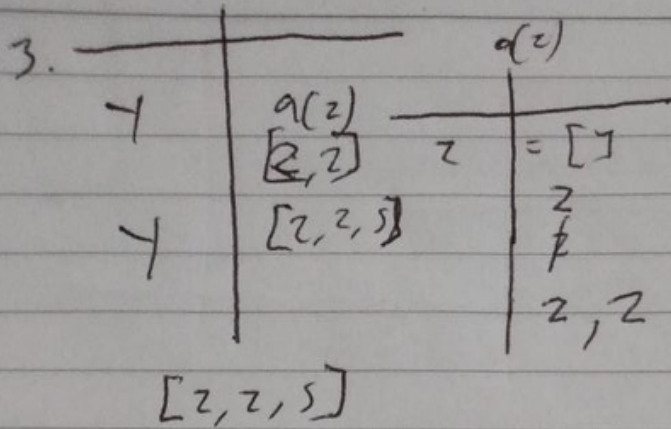 3.
a(2)
Y a(2)
[2, 2] 2 = []
Y [2, 2, 5] 2
2, 2
[2, 2, 5]